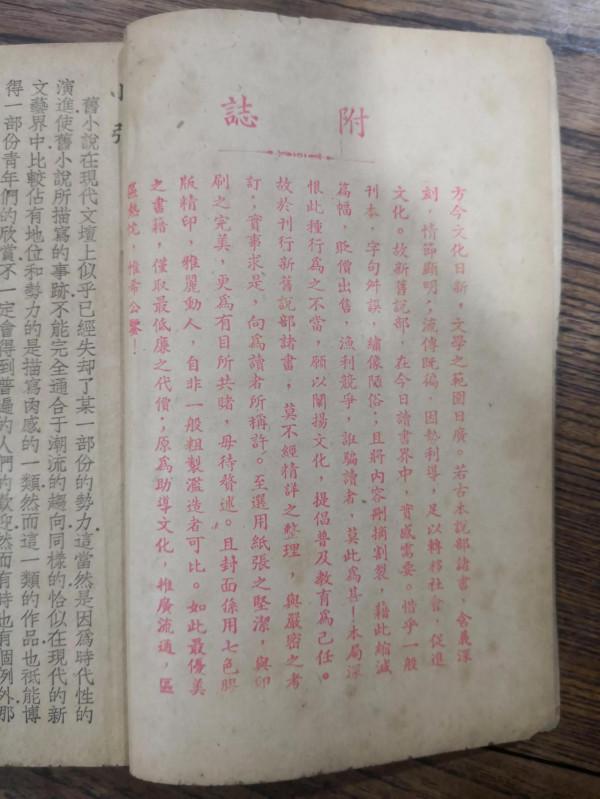 附誌
方今文化日新，文學之範圍日廣。若古本說部諸書，含義深
刻，情節顯明；流傳旣徧，因勢利導，足以轉移社會，促進
文化。故新舊說部，在今日讀書界中，實感需要。惜乎一般
刊本，字句舛誤，繡像陋俗；且將內容刪摘割裂，藉此縮減
篇幅，貶價出售，漁利競爭，誑騙讀者，莫此爲甚！本局深
恨此種行爲之不當，願以闡揚文化，提倡普及教育爲己任。
故於刊行新舊說部諸書，莫不經精詳之整理，與嚴密之考
訂；實事求是，向爲讀者所稱許。至選用紙張之堅潔，與印
刷之完美，更爲有目所共賭，毋待贅述。且封面係用七色膠
版精印，雅麗動人，自非一般粗製濫造者可比。如此最優美
之書籍，僅取最低廉之代價；原爲助導文化，推廣流通，區
區熱忱，惟希公鑒！
舊小說在現代文壇上似乎已經失却了某一部份的勢力這當然是因爲時代性的
演進使舊小說所描寫的事跡不能完全適合于潮流的趨向同樣的恰似在現代的新
文藝界中比較佔有地位和勢力的是描寫肉感的一類然而這一類的作品也祇能博
得一部份青年們的欣賞不一定會得到普遍的人們的歡迎然而有時也有個例外那